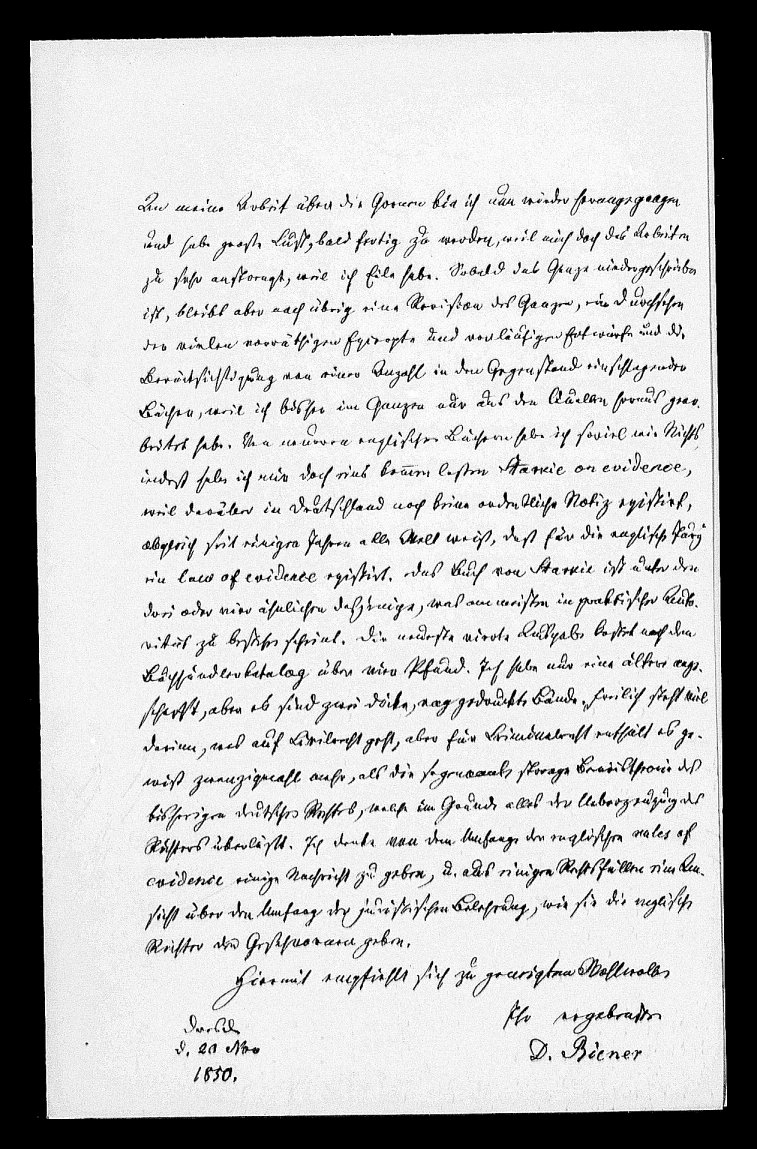 An meine Arbeit über die Geschworenen bin ich nun wieder herangegangen
und habe große Lust, bald fertig zu werden, weil mich doch das Arbeiten
zu sehr anstrengt, weil ich Eile habe. Sobald das Ganze niedergeschrieben
ist, bleibt aber noch übrig eine Revision des Ganzen, ein Durchsehen
der vielen vorräthigen Excerpte und vorläufigen Entwürfe und die
Berücksichtigung von einer Anzahl in den Gegenstand einschlagender
Bücher, weil ich bisher im Ganzen nur aus den Quellen heraus gear-
beitet habe. Von neueren englischen Büchern habe ich soviel wie Nichts,
indeß habe ich mir doch eins kommen lassen Starkie on evidence,
weil darüber in Deutschland noch keine ordentliche Notiz existirt,
obgleich seit einigen Jahren alle Welt weiß, daß für die englische Jury
ein law of evidence existirt. Das Buch von Starkie ist unter den
drei oder vier ähnlichen dasjenige, was am meisten in praktischer Auto-
rität zu bestehen scheint. Die neueste vierte Ausgabe kostet nach dem
Buchhändlerkatalog über vier Pfund. Ich habe nur eine ältere ange-
schafft, aber es sind zwei dicke, eng gedruckte Bände. Freilich steht viel
darinn, was auf Civilrecht geht, aber für Criminalrecht enthält es ge-
wiß zwanzigmahl mehr, als die sogenannte strenge Beweistheorie des
bisherigen deutschen Rechtes, welche im Grunde alles der Ueberzeugung des
Richters überläßt. Ich denke von dem Umfange der englischen rules of
evidence einige Nachricht zu geben, u. aus einigen Rechtsfällen eine An-
sicht über den Umfang der juristischen Belehrung, wie sie die englische
Richter den Geschworenen geben.
Hiermit empfiehlt sich zu geneigtem Wohlwollen
Ihr ergebenster
D. Biener
Dresden
d. 20 Nov
1850.